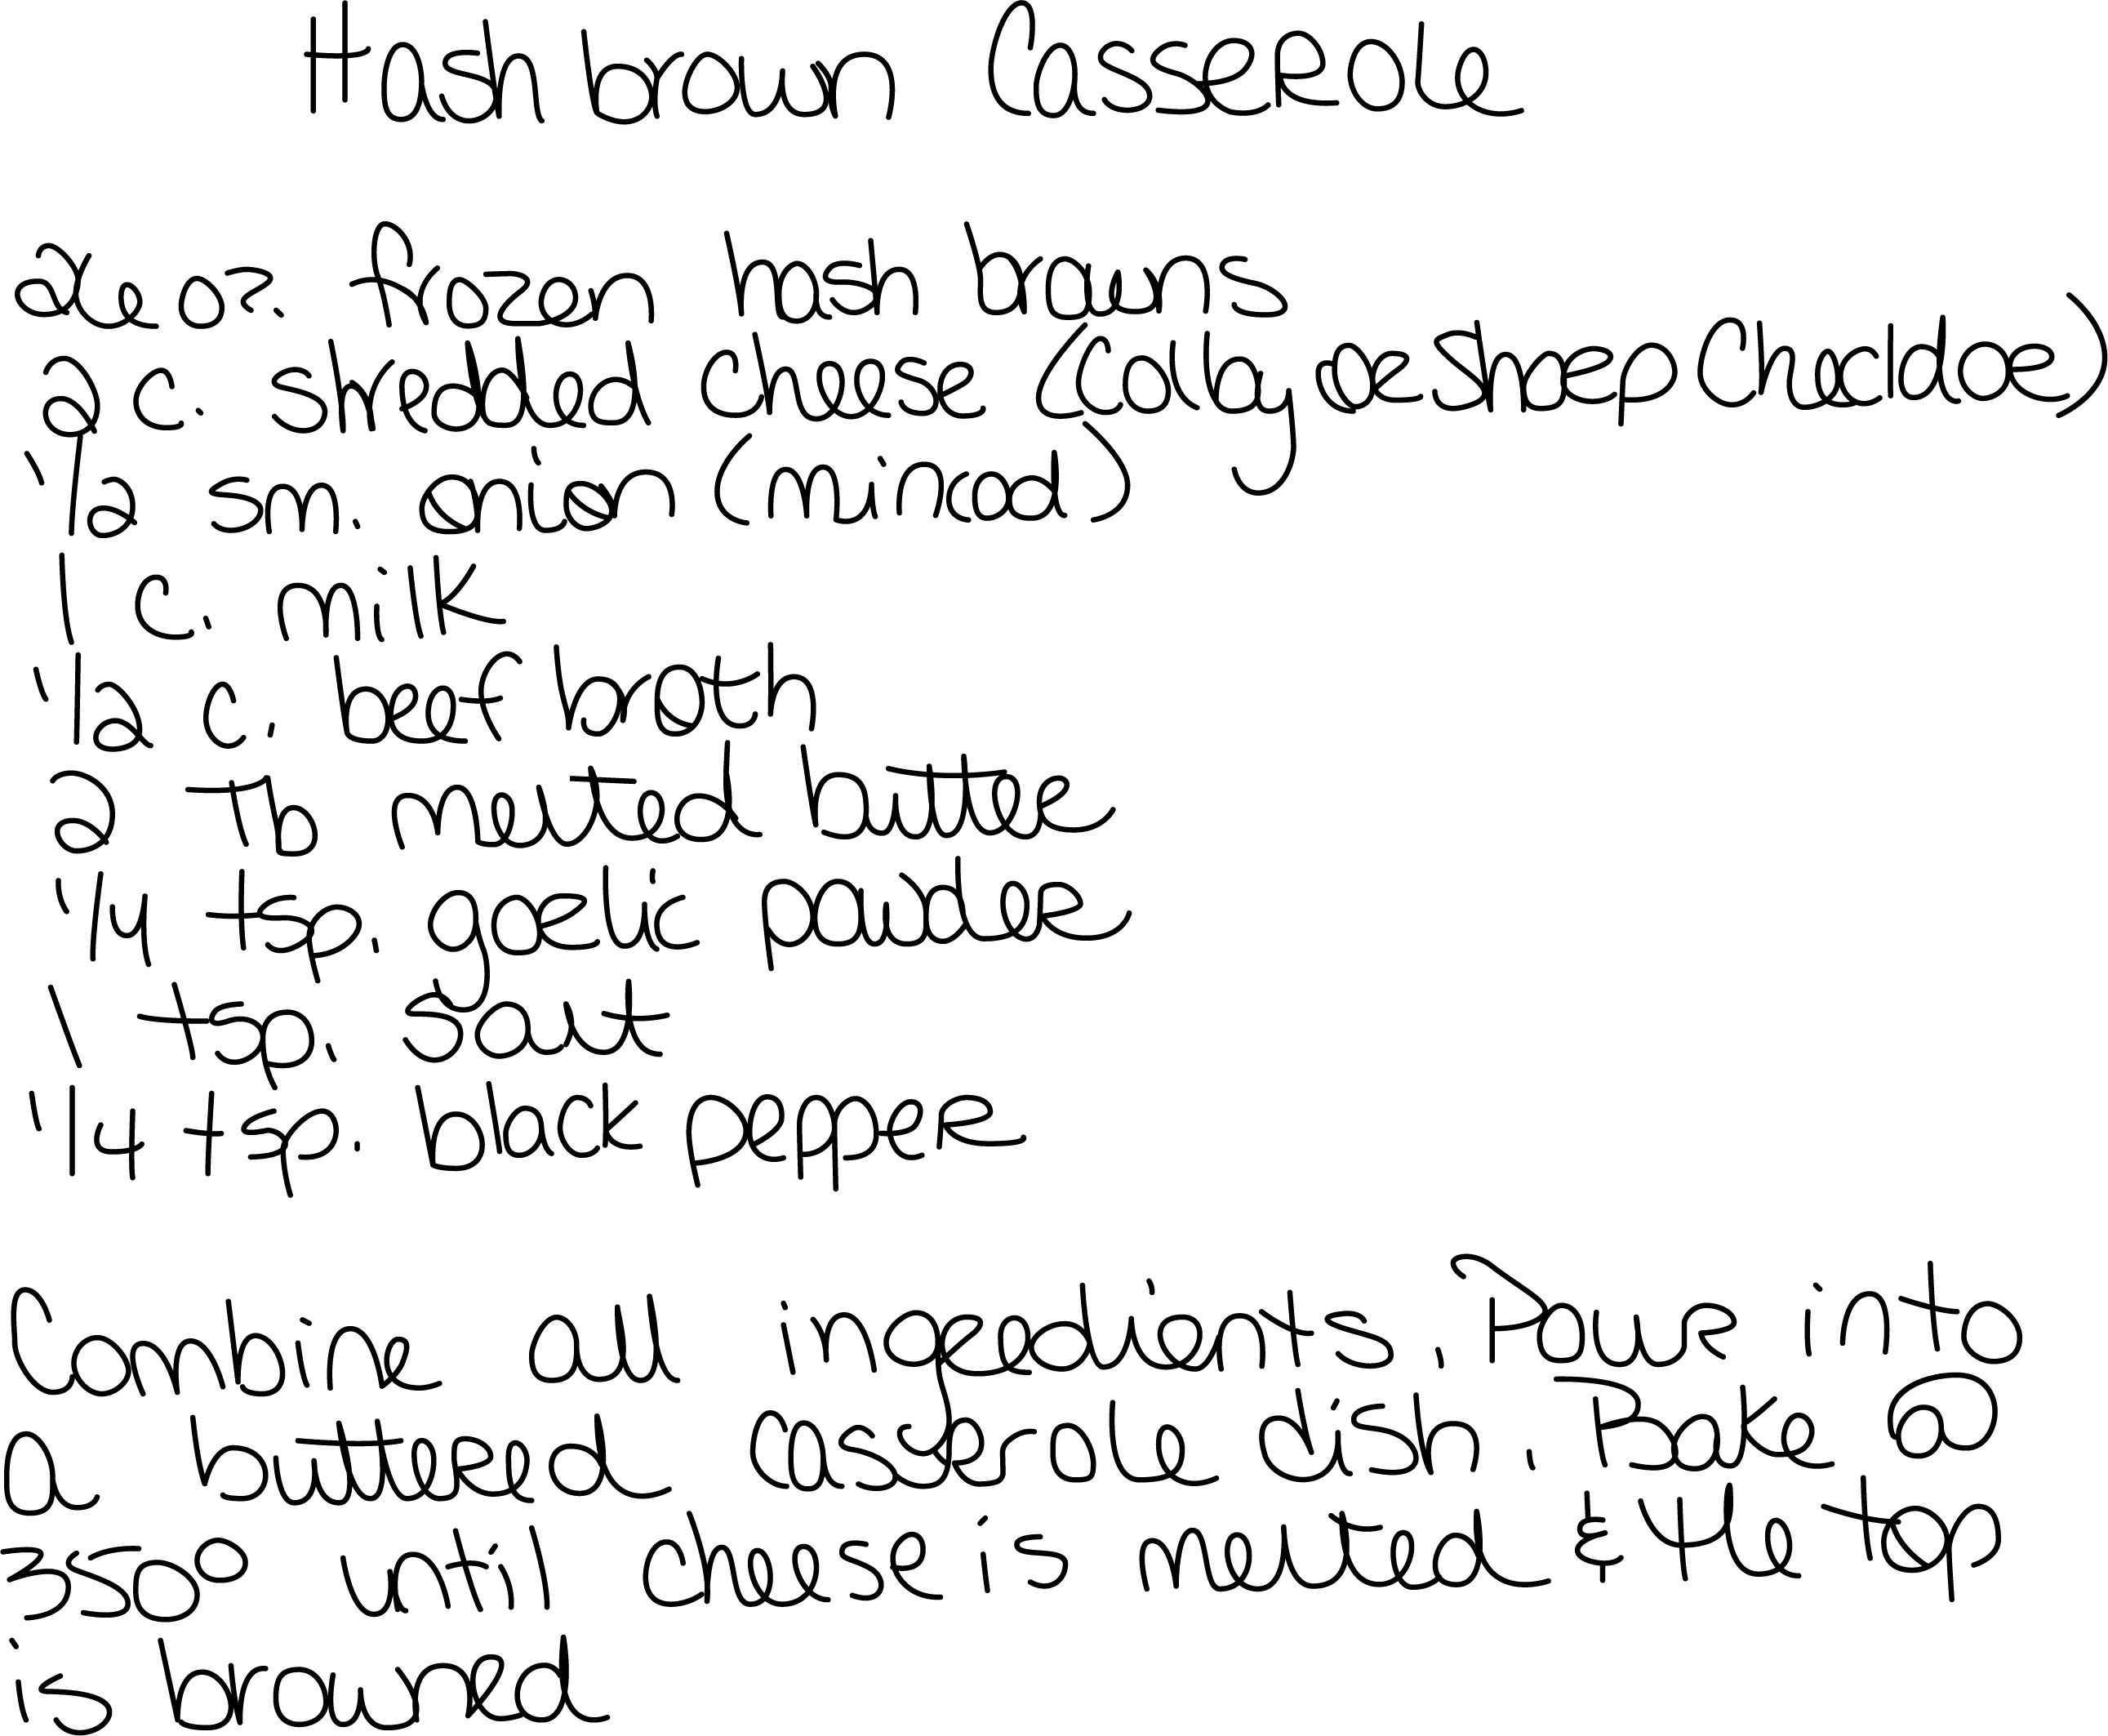 Hash brown Casserole
26 oz. frozen hash browns
2 c. shredded cheese (Colby or sharp Cheddar)
1/2 sm. onion (minced)
1 c. milk
1/2 c. beef broth
2 Tb melted butter
1/4 tsp. garlic powder
1 tsp. salt
1/4 tsp. black pepper
Combine all ingredients. Pour into
a buttered casserole dish. Bake @
350° until cheese is melted & the top
is browned